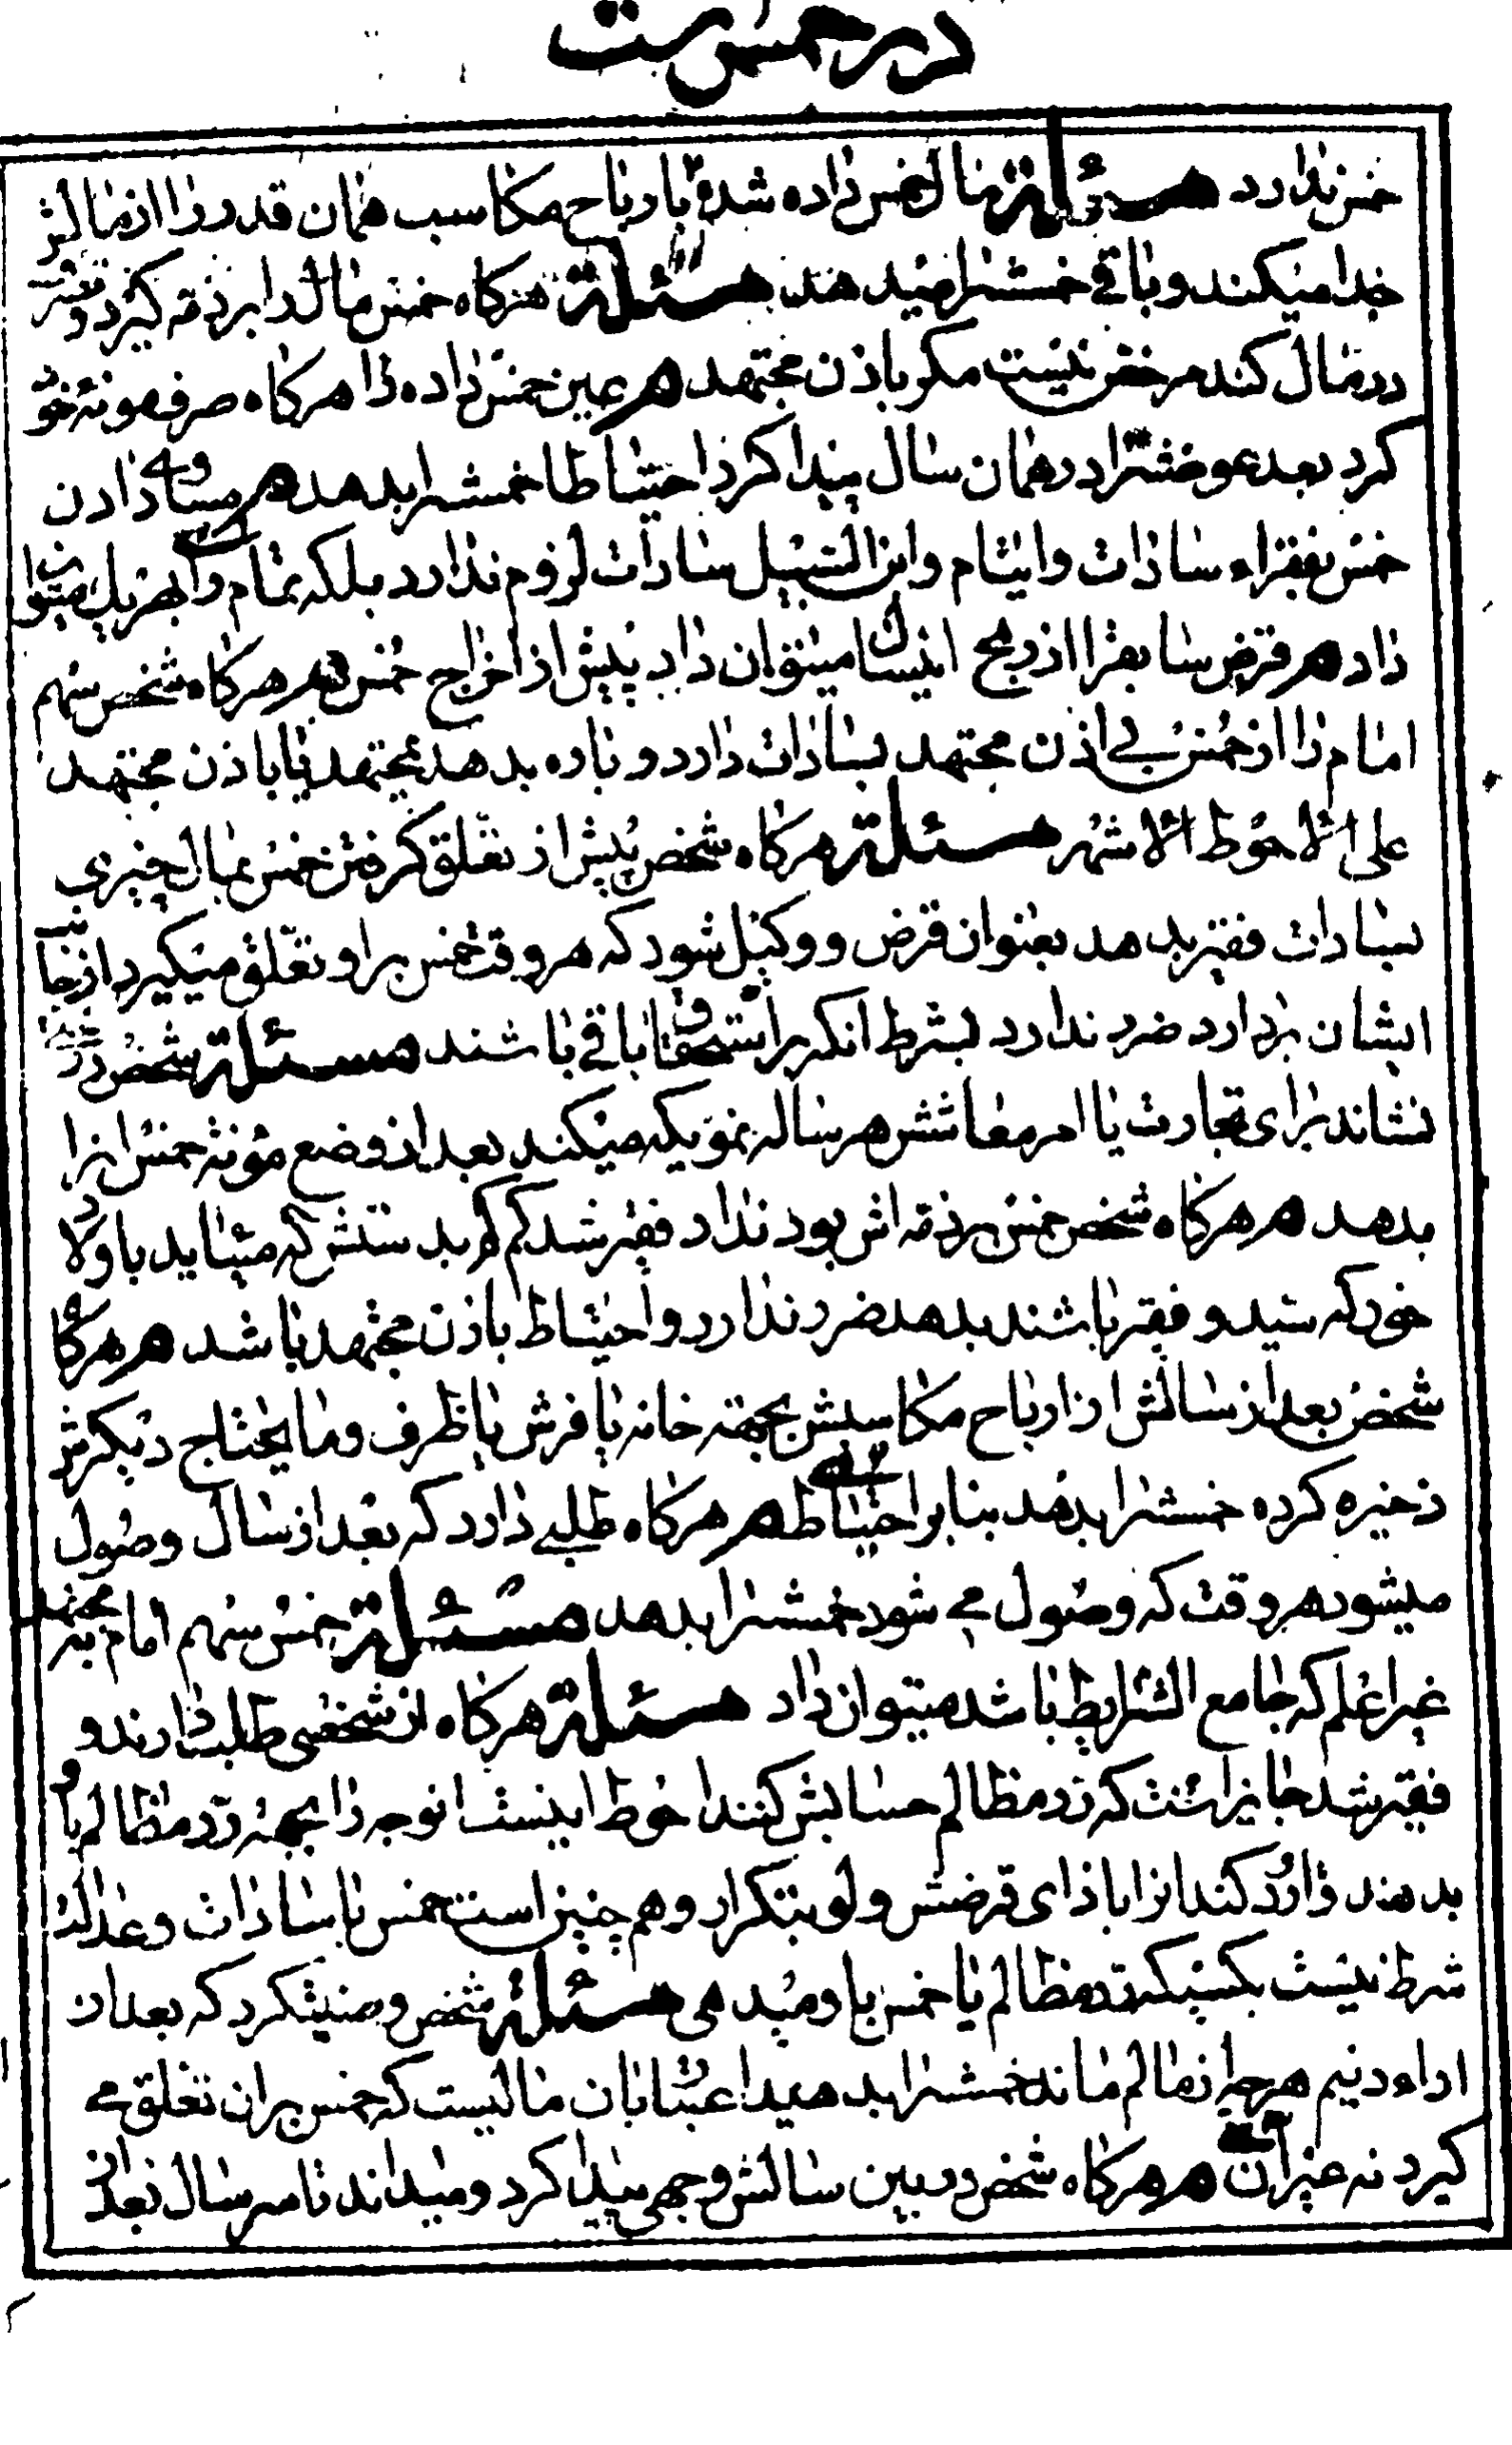 در خمس است
خمس ندارد مسئلة مال خمس داده شده با ارباح مکاسب همان قدر را از مالش
جدا میکند و باقی خمسش را میدهد مسئلة هرگاه خمس مال را بر ذمه گیرد و تصرف
در مال کند مرخص نیست مگر باذن مجتهد م عین خمس داده را هرگاه صرف مونه خود
کرد بعد عوضش را در همان سال پیدا کرد احتیاطا خمسش را بدهد م مساوی دادن
خمس بفقراء سادات و ایتام و ابن السبیل سادات لزوم ندارد بلکه تمام را بهر یک میتوان
داد م قرض سابقرا از ربح اینسال میتوان داد پیش از اخراج خمس م هرگاه شخص سهم
امام را از خمس بی اذن مجتهد بسادات دارد دوباره بدهد بمجتهد یا باذن مجتهد
علی الاحوط الاشهر مسئلة هرگاه شخص پیش از تعلق گرفتن خمس بمال چیزی
بسادات فقیر بدهد بعنوان قرض و وکیل شود که هر وقت خمس بر او تعلق میگیرد از جانب
ایشان بردارد ضرر ندارد بشرط انکه بر استحقاق باقی باشند مسئلة شخص درخت
نشاند برای تجارت یا امر معاشش هر ساله نموّیکه میکند بعد از وضع مؤنه خمس انرا
بدهد م هرگاه شخص خمس بر ذمه اش بود نداد فقیر شد کم کم بدستش که میاید باولاد
خود که سید و فقیر باشند بدهد ضرر ندارد و احتیاط باذن مجتهد باشد م هرگاه
شخص بعد از سالش از ارباح مکاسبش بجهته خانه یا فرش یا ظرف و ما یحتاج دیگرش
ذخیره کرده خمسش را بدهد بنا بر احتیاط م هرگاه طلبی دارد که بعد از سال وصول
میشود هر وقت که وصول می شود خمسش را بدهد مسئلة خمس سهم امام بمجتهد
غیر اعلم که جامع الشرایط باشد میتوان داد مسئلة هرگاه از شخصی طلب دارند و
فقیر شد جایز است که رد مظالم حسابش کنند احوط اینست انوجه را بجهته رد مظالم باو
بدهند و او رد کند انرا بازای قرضش ولو بتکرار و هم چنین است خمس با سادات و عدالت
شرط نیست بکسیکه رد مظالم یا خمس باو میدهی مسئلة شخص وصیت کرد که بعد از
اداء دینم هر چه از مالم ماند خمسش را بدهید اعتبار بان مالیست که خمس بر ان تعلق می
گیرد نه غیر ان م هرگاه شخص در بین سالش وجهی پیدا کرد و میداند تا سر سال بعد از